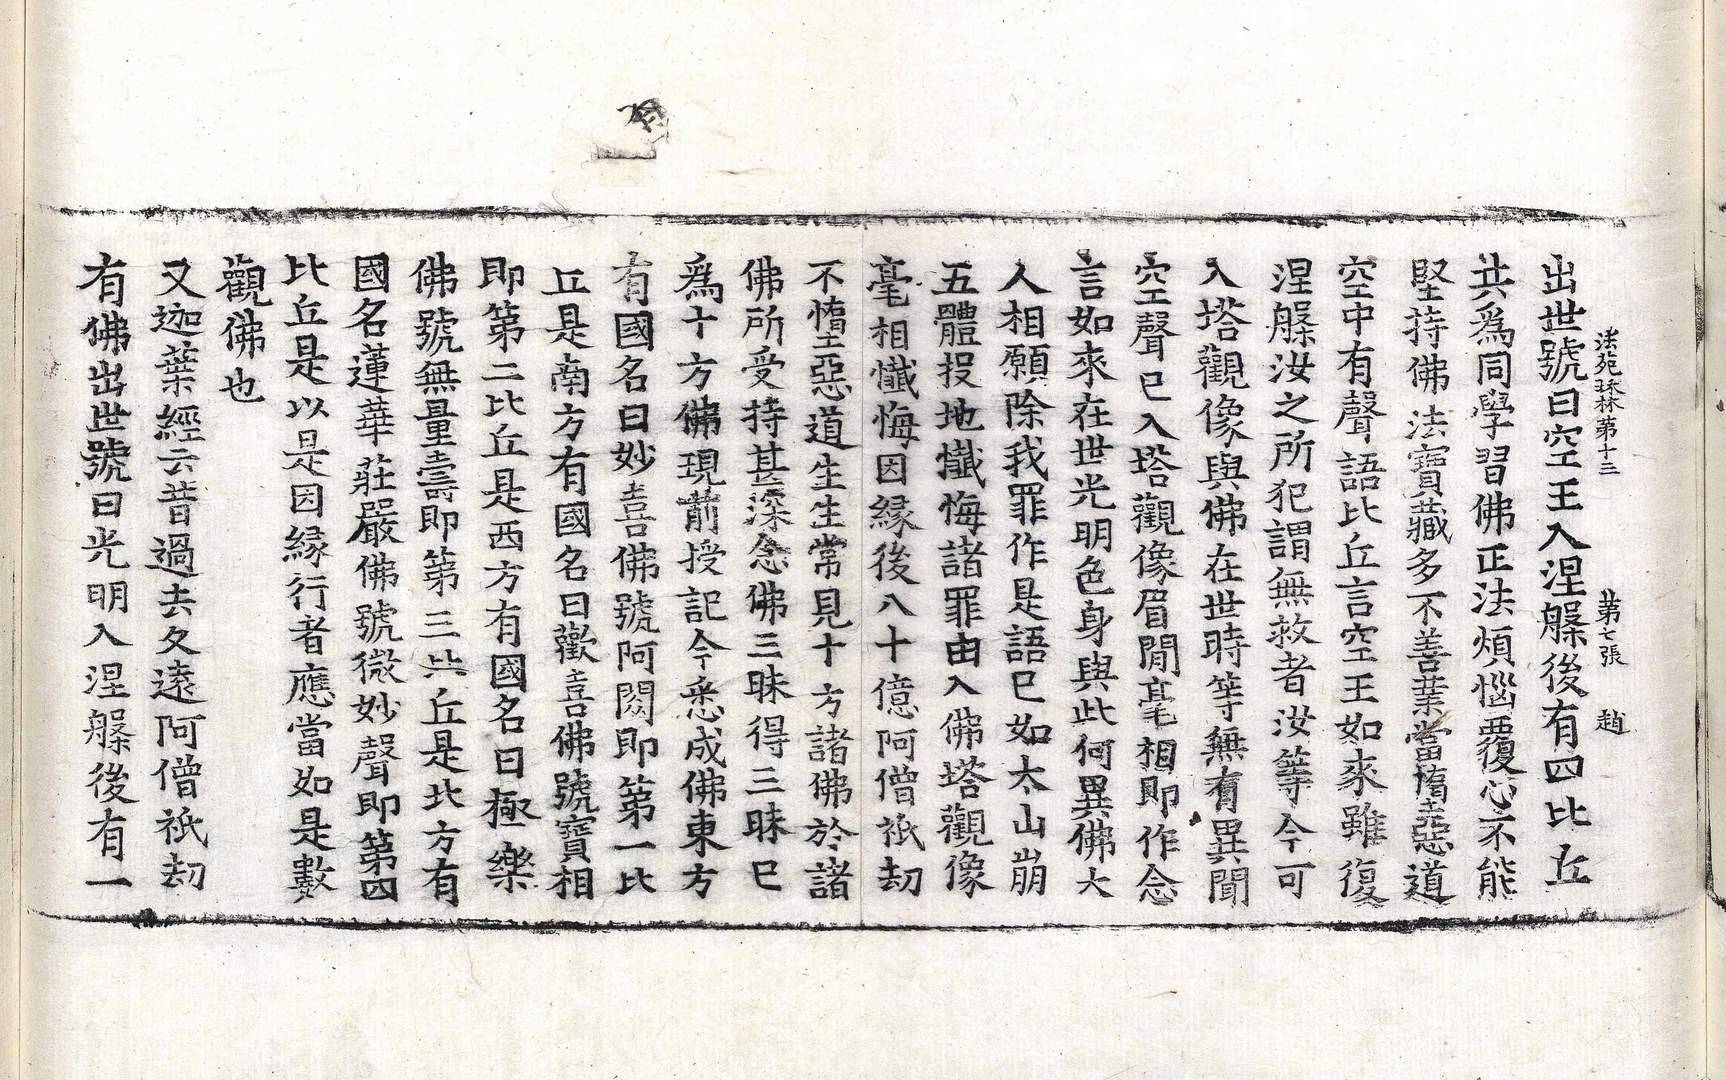 法苑珠林第十三 第七張 趙
出世號曰空王入涅槃後有四比丘
共爲同學習佛正法煩惱覆心不能
堅持佛法寶藏多不善業當墮惡道
空中有聲語比丘言空王如來雖復
涅槃汝之所犯謂無救者汝等今可
入塔觀像與佛在世時等無有異聞
空聲已入塔觀像眉間毫相即作念
言如來在世光明色身與此何異佛大
人相願除我罪作是語已如太山崩
五體投地懺悔諸罪由入佛塔觀像
毫相懺悔因緣後八十億阿僧祇劫
不墮惡道生生常見十方諸佛於諸
佛所受持甚深念佛三昧得三昧已
爲十方佛現前授記今悉成佛東方
有國名曰妙喜佛號阿閦即第一比
丘是南方有國名曰歡喜佛號寶相
即第二比丘是西方有國名曰極樂
佛號無量壽即第三比丘是北方有
國名蓮華莊嚴佛號微妙聲即第四
比丘是以是因緣行者應當如是數
觀佛也
又迦葉經云昔過去久遠阿僧祇劫
有佛出世號曰光明入涅槃後有一